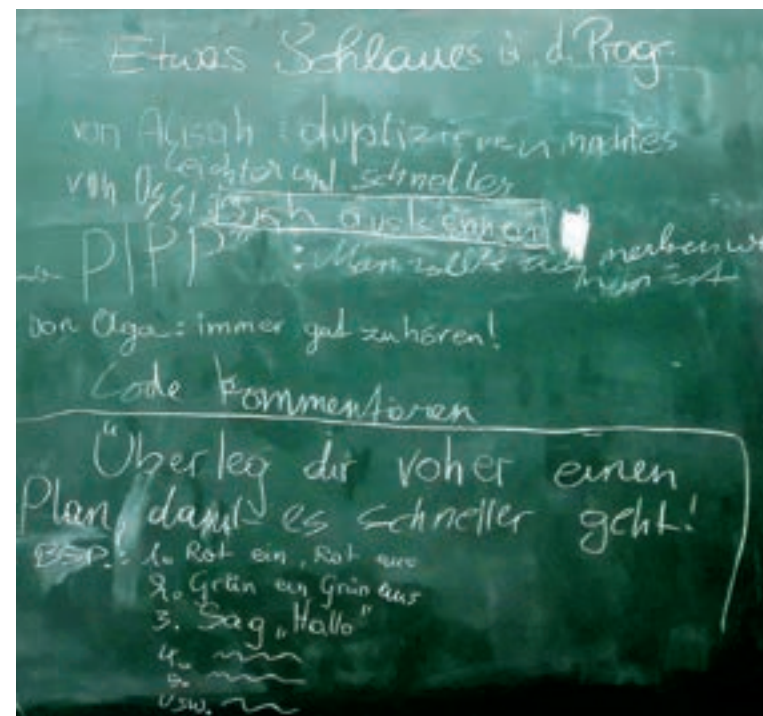 Etwas Schlaues ü. d. Progr.
von Alisah : duplizieren machtes
leichter und schneller
von Ossi: Sich auskennen
PIPP" : Man sollte merken wo
man ist
von Olga: immer gut zuhören!
Code kommentoren
Überleg dir voher einen
Plan, damit es schneller geht!
BSP.: 1. Rot ein, Rot aus
2. Grün ein Grün aus
3. Sag „Hallo"
4.
5.
usw.